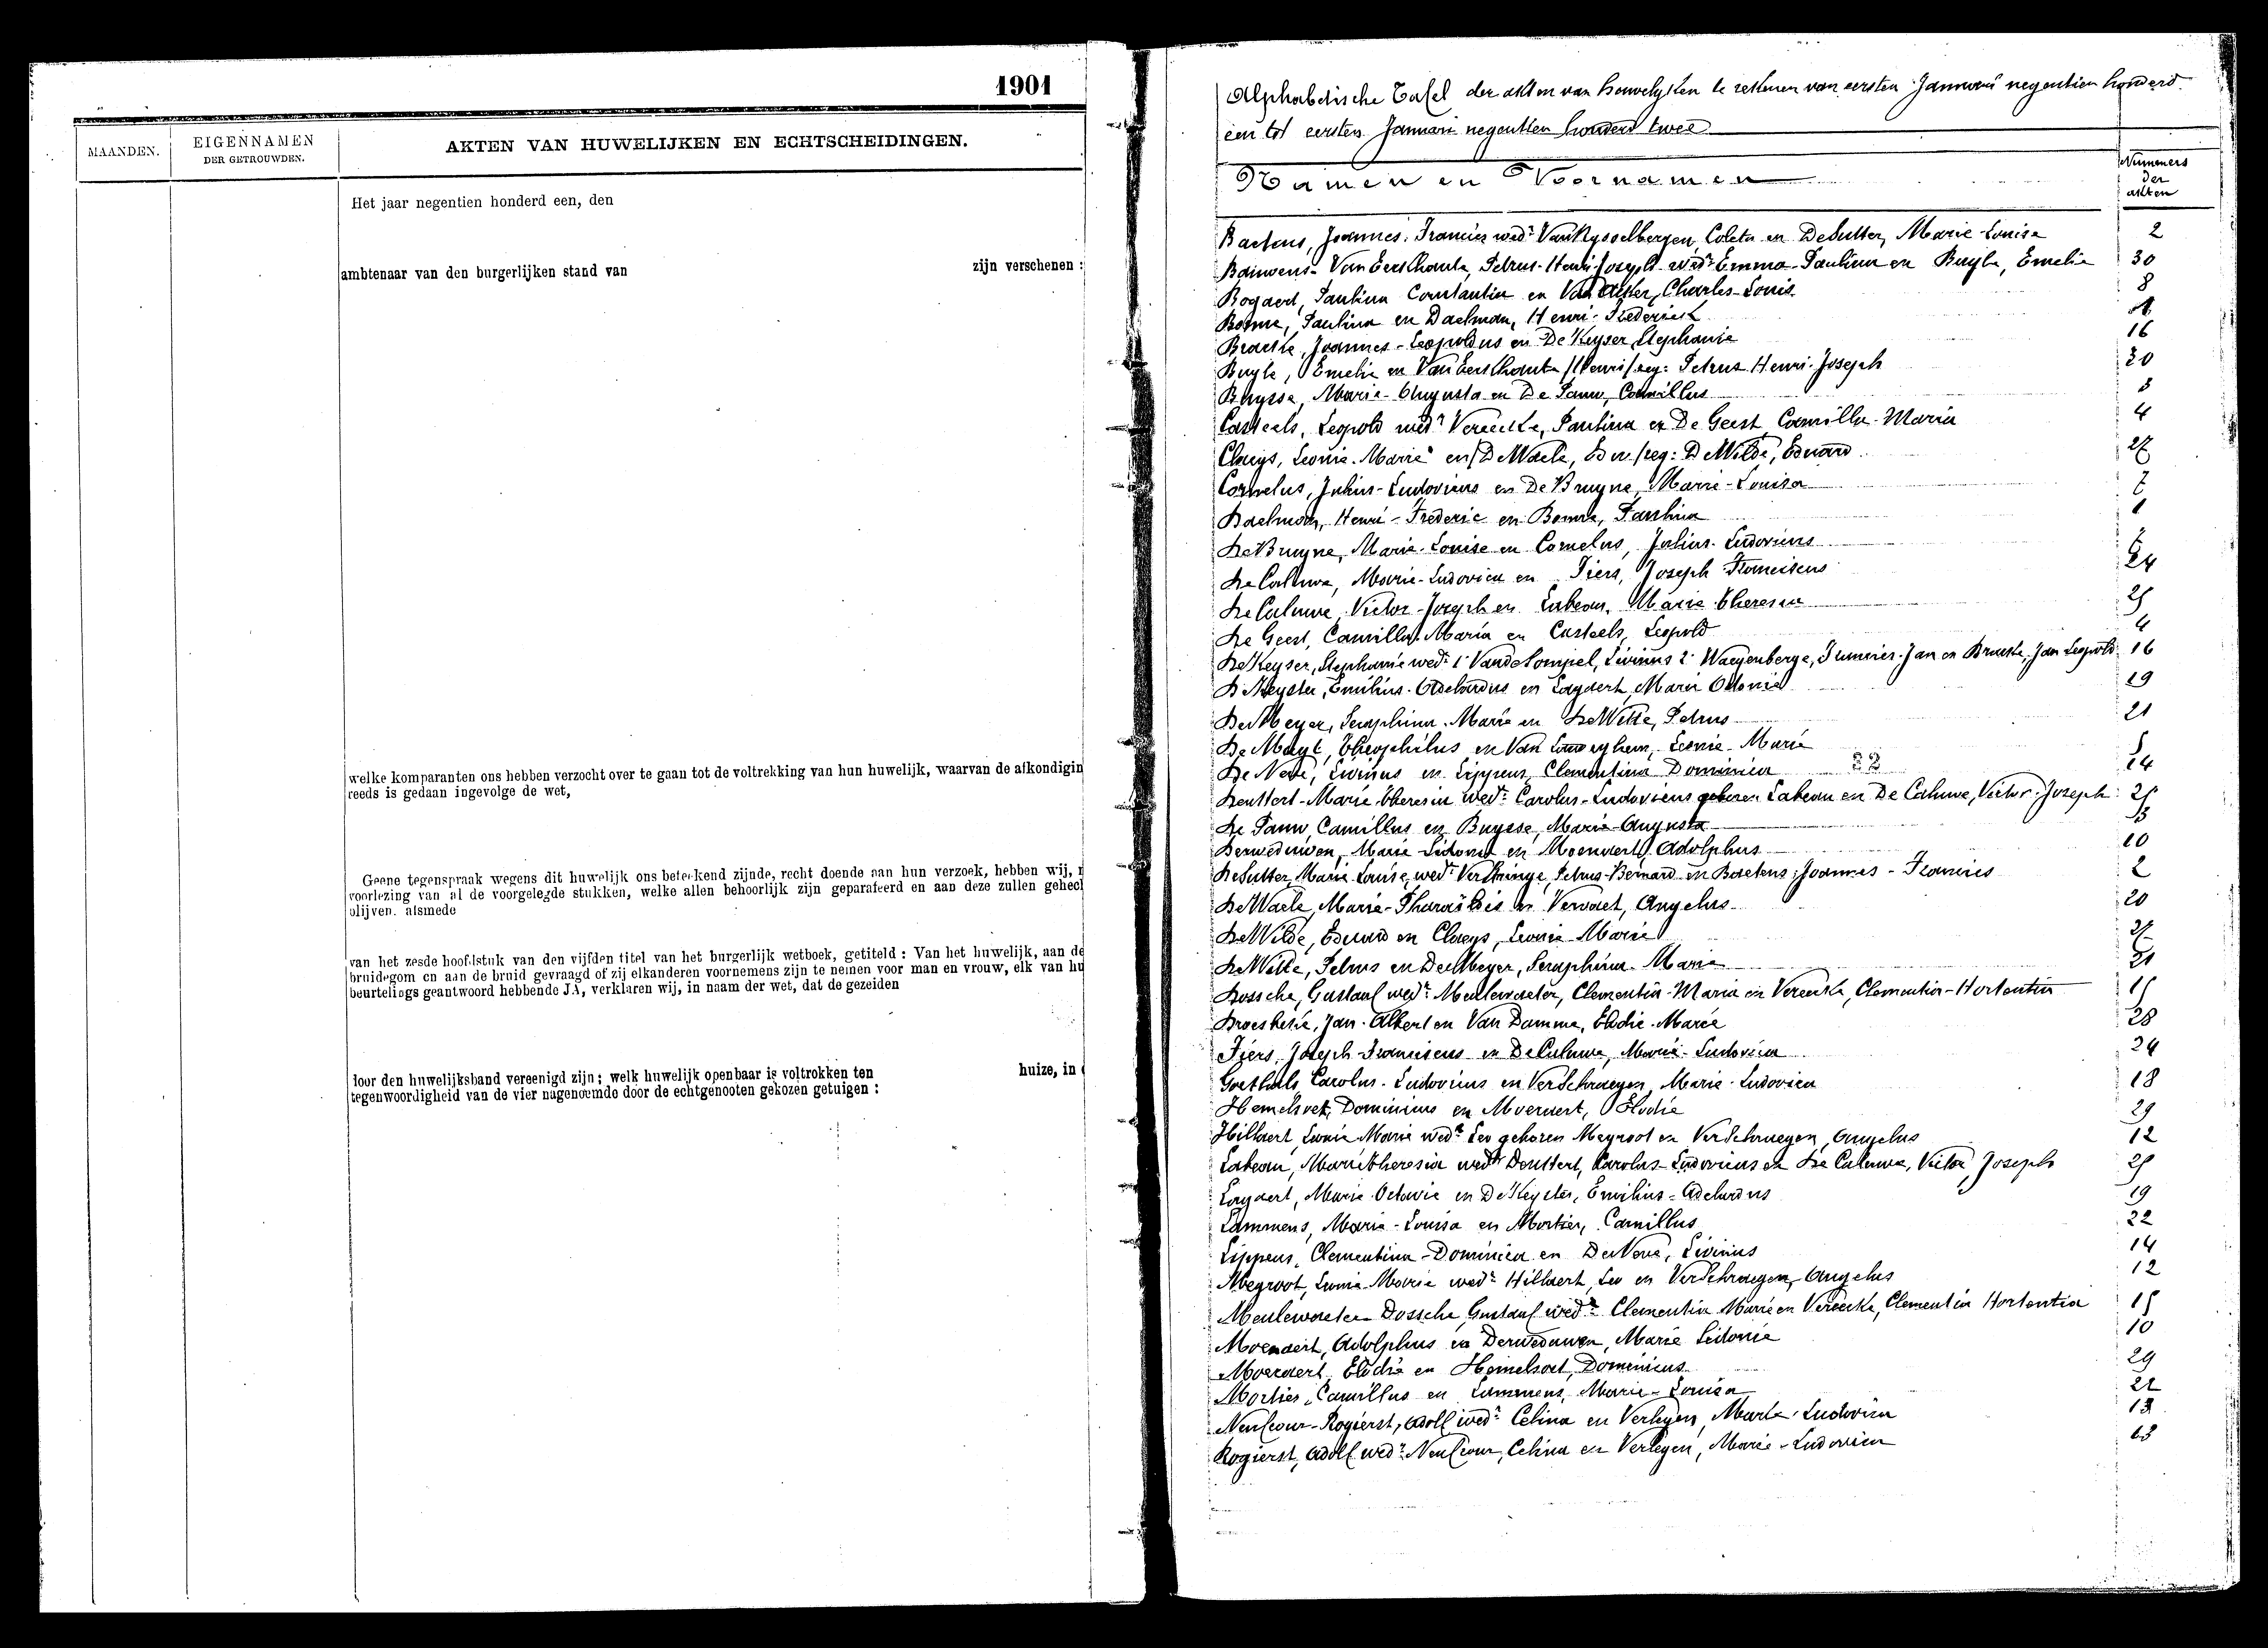 1901
MAANDEN.
EIGENNAMEN
DER GETROUWDEN.
AKTEN VAN HUWELIJKEN EN ECHTSCHEIDINGEN.
Het jaar negentien honderd een, den
ambtenaar van den burgerlijken stand van zijn verschenen :
welke komparanten ons hebben verzocht over te gaan tot de voltrekking van hun huwelijk, waarvan de afkondigin
reeds is gedaan ingevolge de wet,
Geene tegenspraak wegens dit huwelijk ons beteekend zijnde, recht doende aan hun verzoek, hebben wij,
voorlezing van al de voorgelegde stukken, welke allen behoorlijk zijn geparafeerd en aan deze zullen gehecl
blijven. alsmede
van het zesde hoofdstuk van den vijfden titel van het burgerlijk wetboek, getiteld : Van het huwelijk, aan de
bruidegom en aan de bruid gevraagd of zij elkanderen voornemens zijn te nemen voor man en vrouw, elk van hu
beurtelings geantwoord hebbende JA, verklaren wij, in naam der wet, dat de gezeiden
door den huwelijksband vereenigd zijn ; welk huwelijk openbaar is voltrokken ten huize, in
tegenwoordigheid van de vier nagenoemde door de echtgenooten gekozen getuigen :
Alphabetische Tafel der akten van houwelyken te rekenen van eersten Januari negentien honderd
een tot eersten Januari negentien honderd twee
Namen en Voornamen
Nummers
der
akten
Baetens, Joannes-Francies wedr Van Rysselbergen, Coleta en Desutter, Marie-Louise 2
Bauwens-Van Eeckhaute, Petrus-Henri-Joseph wedr Emma-Paulina en Buyle, Emelie 30
Bogaert, Paulina Constantia en Van Acker, Charles-Louis 8
Bomre, Paulina en Daelman, Henri-Frederick
Braecke, Joannes-Leopoldus en De Keyser, Stephanie 16
Buyle, Emelie en Van Eeckhaute /Henri/ zeg: Petrus Henri-Joseph 30
Buysse, Marie-Augusta en De Pauw, Camillus 3
Casteels, Leopold wedr Vereecke, Paulina en De Geest, Camilla-Maria 4
Claeys, Leonie-Marie en /De Waele, Edw/ zeg: De Wilde, Eduard 27
Cornelus, Julius-Ludovicus en De Bruyne, Marie-Louisa 7
Daelman, Henri-Frederic en Bomre, Paulina 1
De Bruyne, Marie-Louise en Cornelus, Julius-Ludovicus
De Caluwe, Marie-Ludovica en Fiers, Joseph Franciscus 24
De Caluwe, Victor-Joseph en Labeau, Marie Theresia 25
De Geest, Camilla-Maria en Casteels, Leopold 4
De Keyser, Stephanie wedr 1° Vande Sompel, Livinus 2° Waeyenberge, Francies-Jan en Braecke, Jan Leopold 16
De Keyster, Emilius-Adelardus en Laydert, Marie Octavie 19
De Meyer, Seraphina-Marie en De Witte, Petrus 21
De Muyt, Theophilus en Van Leuveyhem, Leonie-Marie
De Neve, Livinus en Lippens, Clementina Dominica 14
Deuttert-Marie-Theresia wedr Carolus-Ludovicus geboren Labeau en De Caluwe, Victor-Joseph 25
De Pauw, Camillus en Buysse, Marie-Augusta 3
Derweduwen, Marie-Sidonie en Moeraert, Adolphus 10
De Sutter, Marie-Louise wedr Verstringe, Petrus-Bernard en Baetens, Joannes-Francies 2
De Waele, Marie-Pharaildis en Vervaet, Angelus 20
De Wilde, Eduard en Claeys, Leonie Marie 27
De Witte, Petrus en De Meyer, Seraphina Marie 21
Dossche, Gustaaf wedr Meulewaeter, Clementia-Maria en Vereecke, Clementia-Hortentia 15
Droesbeke, Jan-Albert en Van Damme, Elodie-Marie 28
Fiers, Joseph-Franciscus en De Caluwe, Marie-Ludovica 24
Goethals, Carolus-Ludovicus en Verschraegen, Marie-Ludovica 18
Hemelsoet, Dominicus en Moeraert, Elodie 29
Hillaert, Leonie Marie wedr Leo geboren Megroot en Verschraegen, Angelus 12
Labeau, Marie Theresia wedr Deuttert, Carolus-Ludovicus en De Caluwe, Victor, Joseph 25
Laydert, Marie-Octavie en De Keyster, Emilius-Adelardus 19
Lammens, Marie-Louisa en Mortier, Camillus 22
Lippens, Clementina-Dominica en De Neve, Livinus 14
Megroot, Leonie-Marie wedr Hillaert, Leo en Verschraegen, Angelus 12
Meulewaeter-Dossche, Gustaaf wedr Clementia Marie en Vereecke, Clementia Hortentia 15
Moeraert, Adolphus en Derweduwen, Marie Sidonie 10
Moeraert, Elodie en Hemelsoet, Dominicus 29
Mortier, Camillus en Lammens, Marie-Louisa 22
Neufcour-Rogierst, Adolf wedr Celina en Verleyen, Marie-Ludovica 13
Rogierst, Adolf wedr Neufcour, Celina en Verleyen, Marie-Ludovica 13